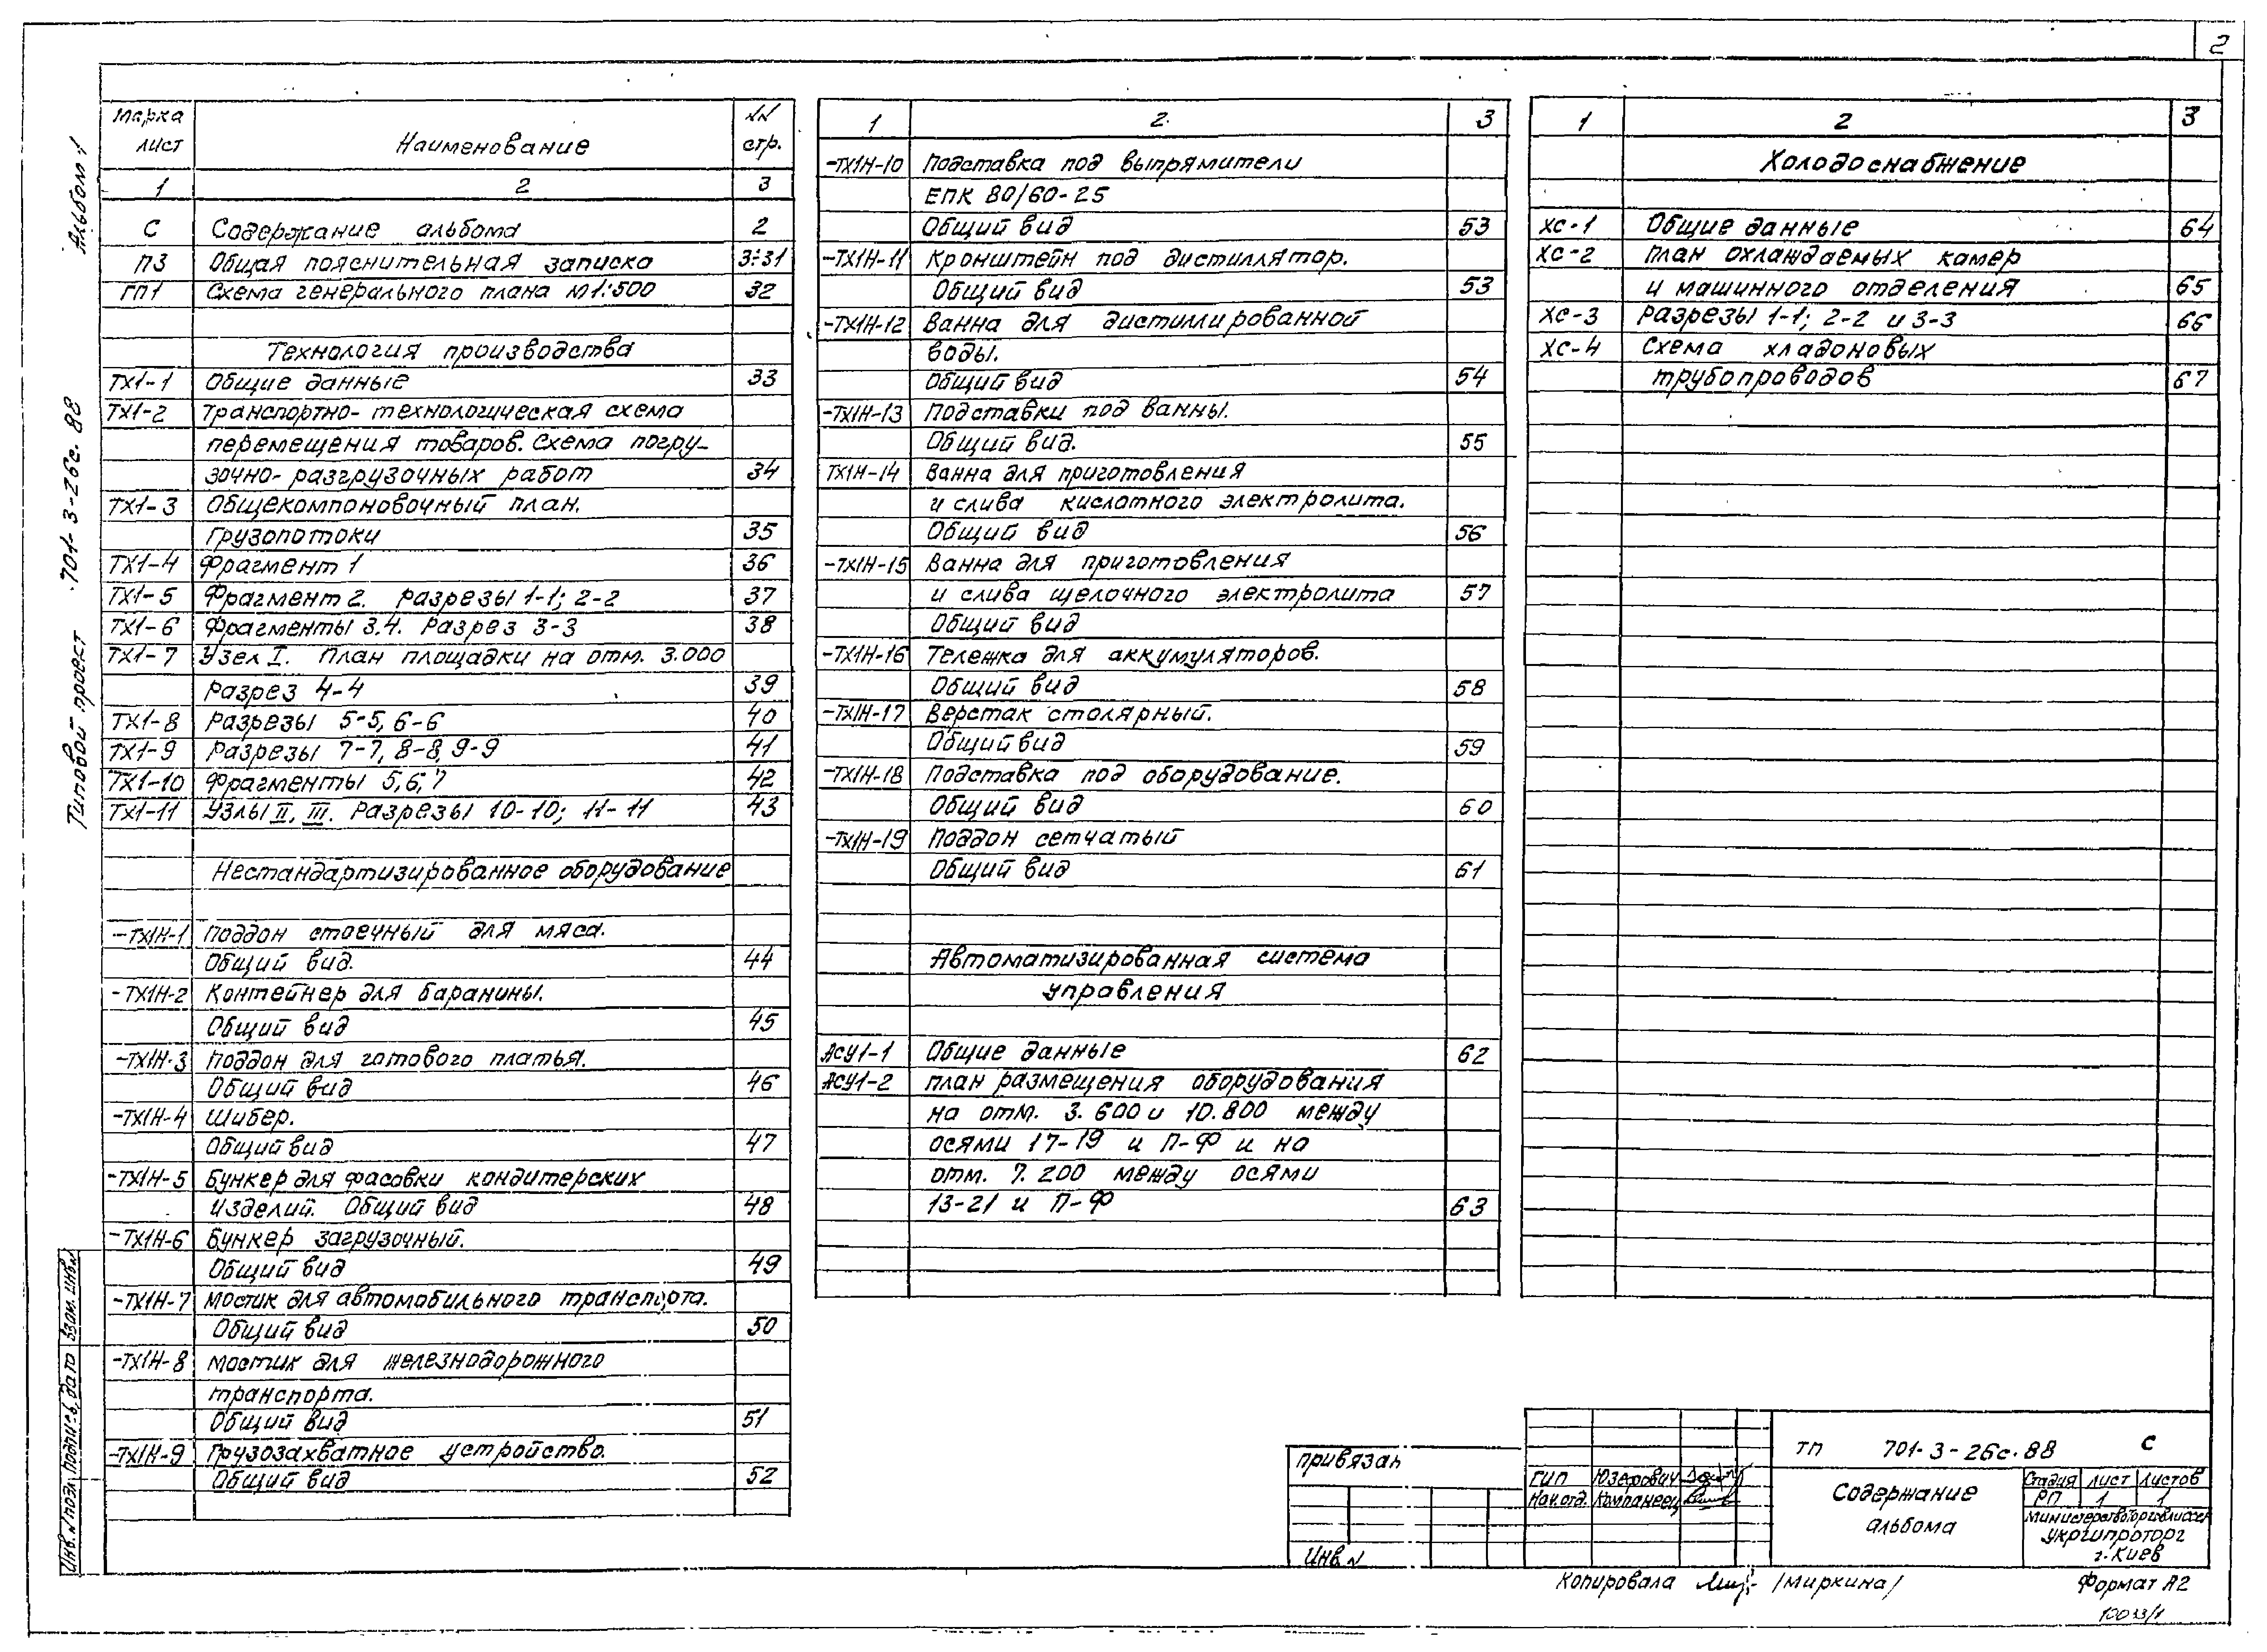 2
Альбом 1
Типовой проект 701-3-26с.88
Марка лист Наименование NN стр.
1 2 3
С Содержание альбома 2
ПЗ Общая пояснительная записка 3÷31
ГП1 Схема генерального плана М1:500 32
Технология производства
ТХ1-1 Общие данные 33
ТХ1-2 Транспортно-технологическая схема
перемещения товаров. Схема погру-
зочно-разгрузочных работ 34
ТХ1-3 Общекомпоновочный план.
Грузопотоки 35
ТХ1-4 Фрагмент 1 36
ТХ1-5 Фрагмент 2. Разрезы 1-1; 2-2 37
ТХ1-6 Фрагменты 3.4. Разрез 3-3 38
ТХ1-7 Узел I. План площадки на отм. 3.000
Разрез 4-4 39
ТХ1-8 Разрезы 5-5, 6-6 40
ТХ1-9 Разрезы 7-7, 8-8, 9-9 41
ТХ1-10 Фрагменты 5, 6, 7 42
ТХ1-11 Узлы II, III. Разрезы 10-10; 11-11 43
Нестандартизированное оборудование
-ТХ1Н-1 Поддон стоечный для мяса.
Общий вид. 44
-ТХ1Н-2 Контейнер для баранины.
Общий вид 45
-ТХ1Н-3 Поддон для готового платья.
Общий вид 46
-ТХ1Н-4 Шибер.
Общий вид 47
-ТХ1Н-5 Бункер для фасовки кондитерских
изделий. Общий вид 48
-ТХ1Н-6 Бункер загрузочный.
Общий вид 49
-ТХ1Н-7 Мостик для автомобильного транспорта.
Общий вид 50
-ТХ1Н-8 Мостик для железнодорожного
транспорта.
Общий вид 51
-ТХ1Н-9 Грузозахватное устройство.
Общий вид 52
1 2 3
-ТХ1Н-10 Подставка под выпрямители
ЕПК 80/60-25
Общий вид 53
-ТХ1Н-11 Кронштейн под дистиллятор.
Общий вид 53
-ТХ1Н-12 Ванна для дистиллированной
воды.
Общий вид 54
-ТХ1Н-13 Подставки под ванны.
Общий вид. 55
ТХ1Н-14 Ванна для приготовления
и слива кислотного электролита.
Общий вид 56
-ТХ1Н-15 Ванна для приготовления
и слива щелочного электролита 57
Общий вид
-ТХ1Н-16 Тележка для аккумуляторов.
Общий вид 58
-ТХ1Н-17 Верстак столярный.
Общий вид 59
-ТХ1Н-18 Подставка под оборудование.
Общий вид 60
-ТХ1Н-19 Поддон сетчатый
Общий вид 61
Автоматизированная система
управления
АСУ1-1 Общие данные 62
АСУ1-2 План размещения оборудования
на отм. 3.600 и 10.800 между
осями 17-19 и П-Ф и на
отм. 7.200 между осями
13-21 и П-Ф 63
1 2 3
Холодоснабжение
ХС-1 Общие данные 64
ХС-2 План охлаждаемых камер
и машинного отделения 65
ХС-3 Разрезы 1-1; 2-2 и 3-3 66
ХС-4 Схема хладоновых
трубопроводов 67
Инв. N подл. Подпись, дата Взам. инв. N
Привязан
Инв. N
ТП 701-3-26с.88 С
ГИП Юзефович
Нач. отд. Компанеец
Содержание альбома
Стадия Лист Листов
РП 1 1
Министерство торговли СССР
Укргипроторг
г. Киев
Копировала /Миркина/
Формат А2
10033/1